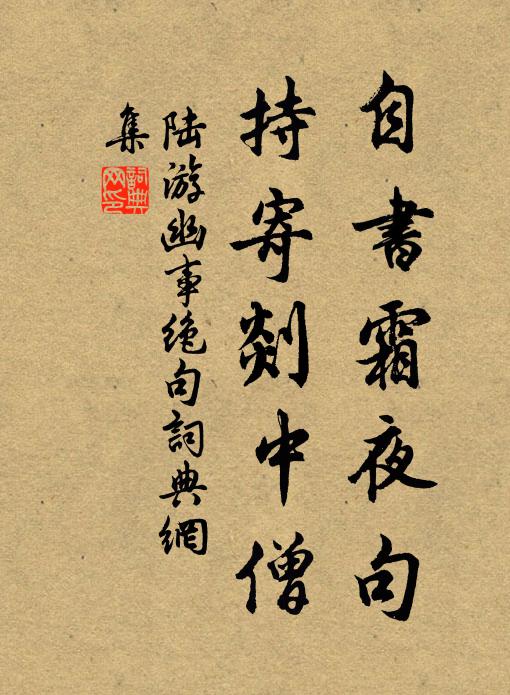 自書霜夜句
持寄剡中僧
陆游幽事絶句詞典網
集
詞典
网印